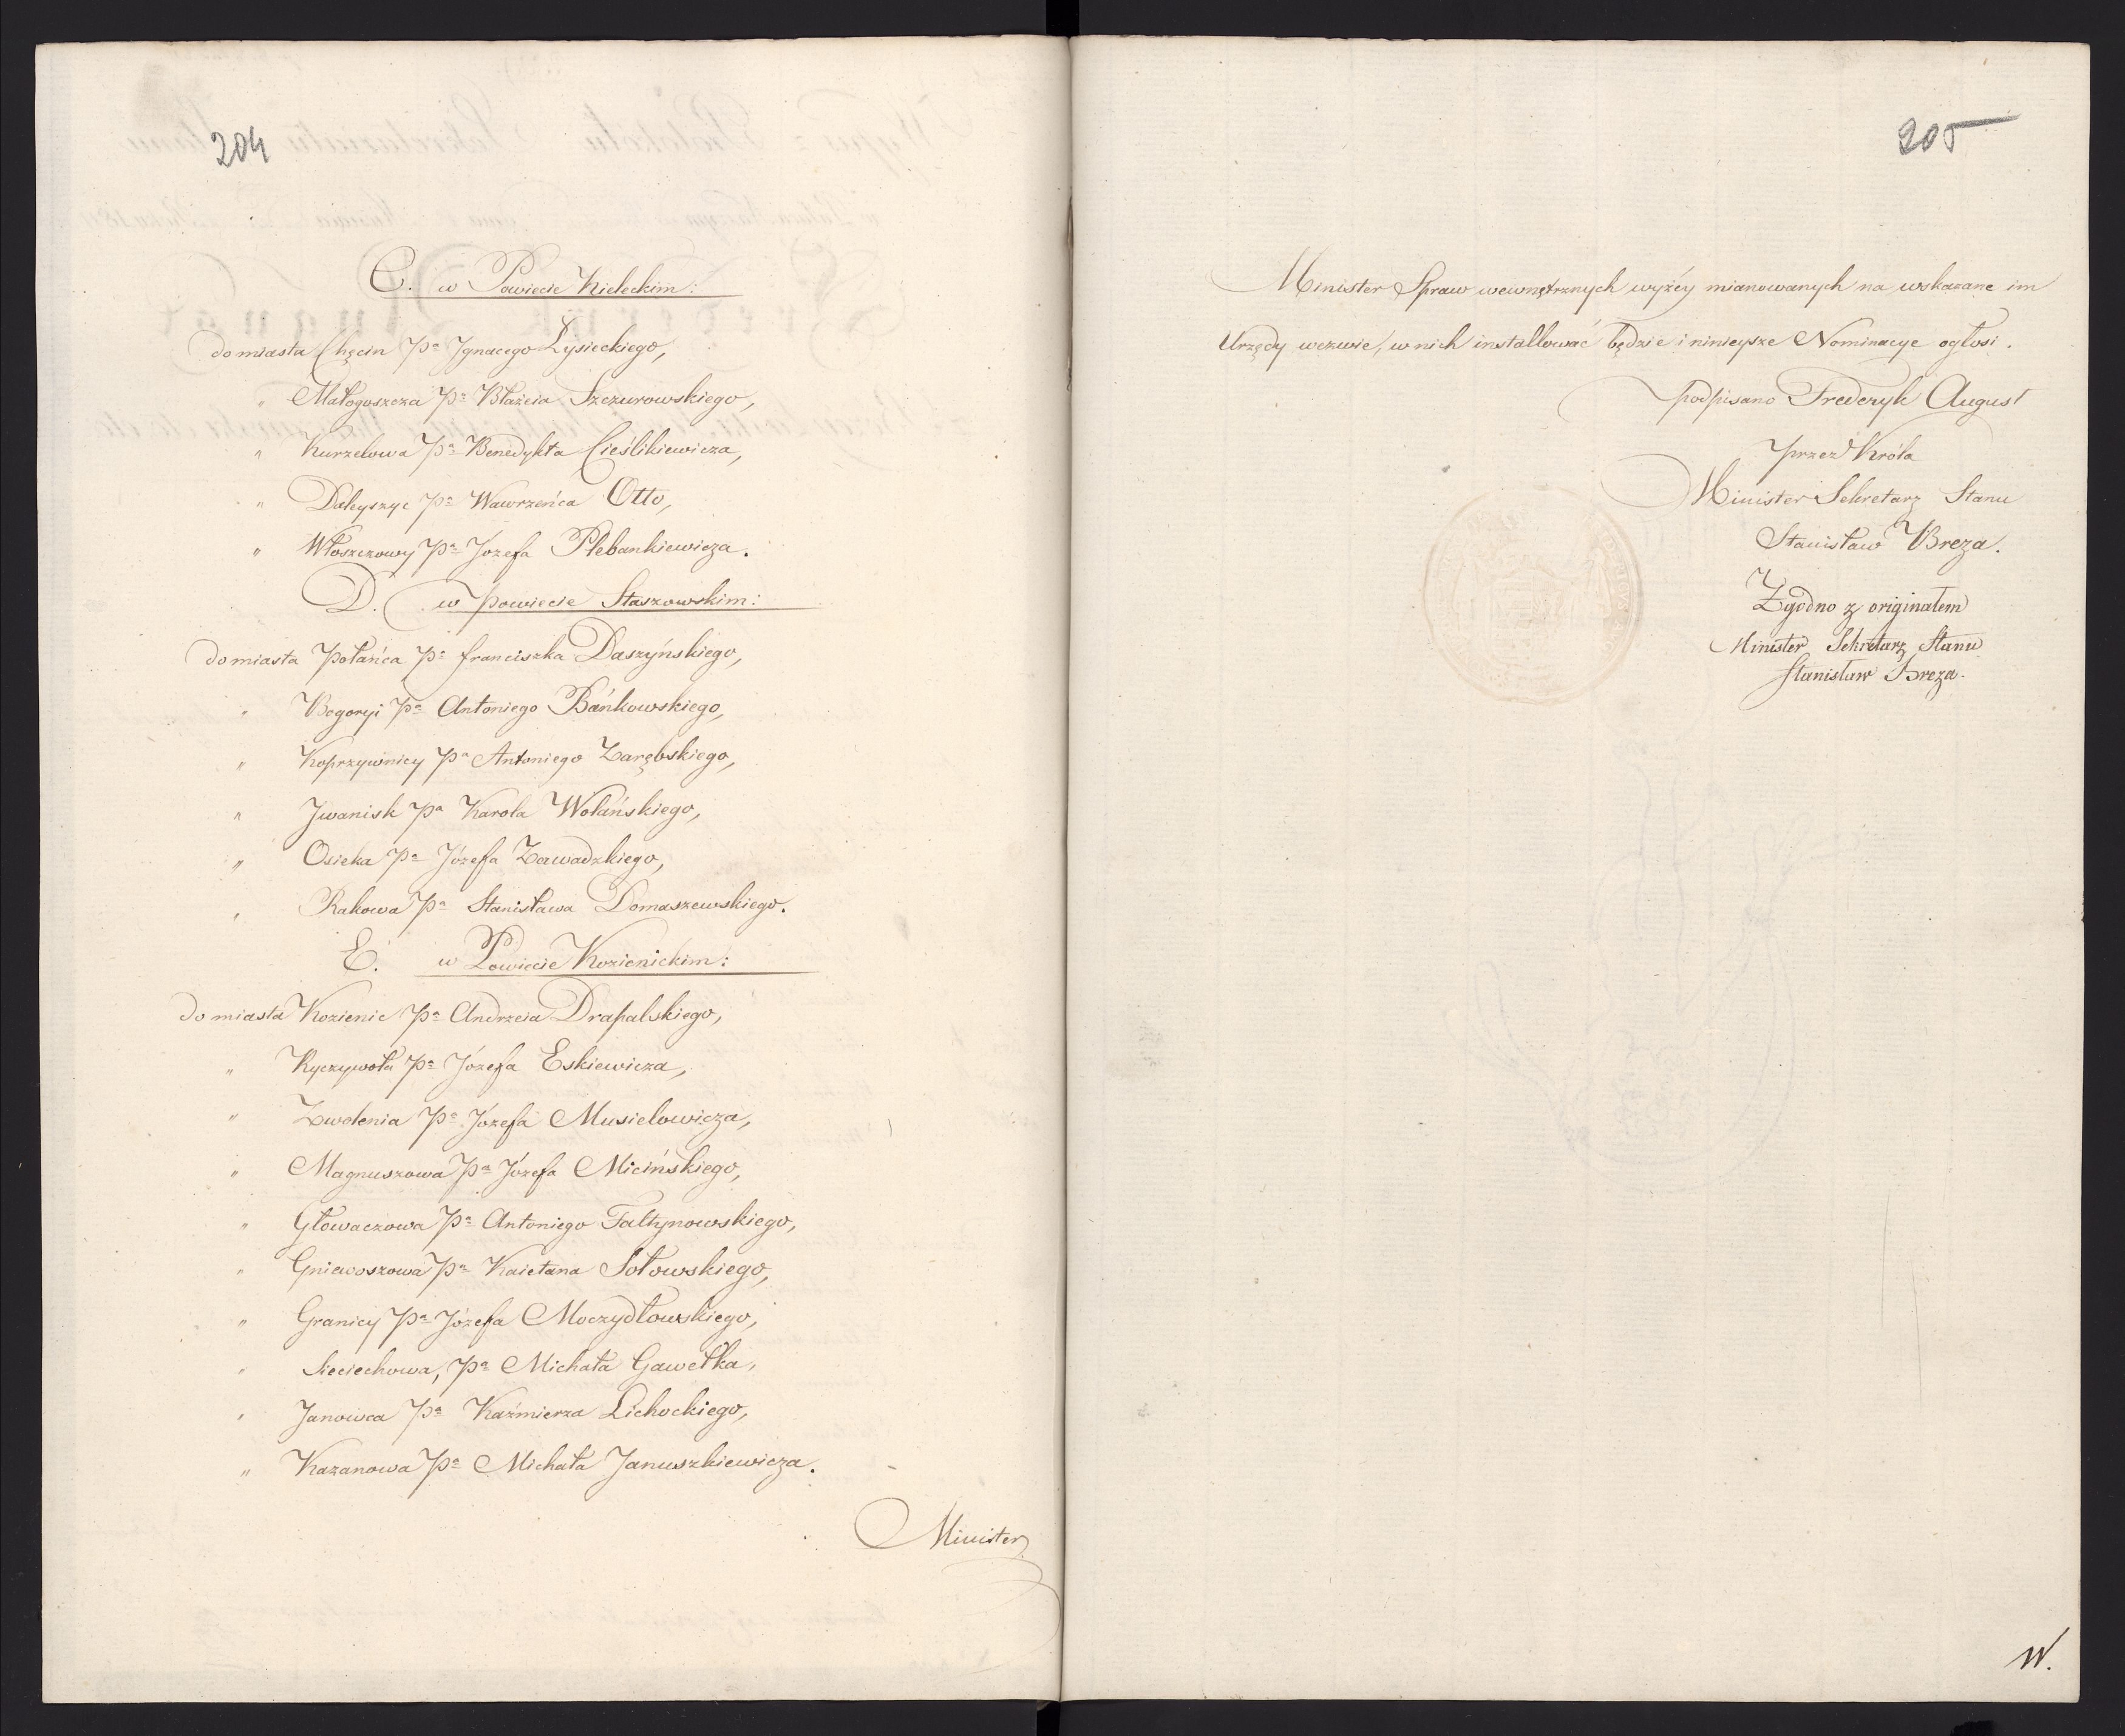 204
C. w Powiecie Kieleckim:
do miasta Chęcin Pa Jgnacego Łysieckiego,
" Małogoszcza Pa Błażeia Szczurowskiego,
" Kurzelowa Pa Benedykta Cieślikiewicza,
" Daleyszyc Pa Wawrzeńca Otto,
" Włoszczowy Pa Jozefa Plebankiewicza.
D. w Powiecie Staszowskim:
do miasta Połańca Pa franciszka Daszyńskiego,
" Bogoryi Pa Antoniego Bańkowskiego,
" Koprzywnicy Pa Antoniego Zarębskiego,
" Jwanisk Pa Karola Wolańskiego,
" Osieka Pa Józefa Zawadzkiego,
" Rakowa Pa Stanisława Domaszewskiego.
E. w Powiecie Kozienickim:
do miasta Kozienic Pa Andrzeia Drapalskiego,
" Ryczywołu Pa Józefa Eskiewicza,
" Zwolenia Pa Józefa Musielowicza,
" Magnuszowa Pa Józefa Micińskiego,
" Głowaczowa Pa Antoniego Faltynowskiego,
" Gniewoszowa Pa Kaietana Sołowskiego,
" Granicy Pa Józefa Moczydłowskiego,
" Sieciechowa, Pa Michała Gawełka,
" Janowca Pa Kaźmierza Lichockiego,
" Kazanowa Pa Michała Januszkiewicza.
Minister
205
Minister Spraw wewnętrznych wyżéy mianowanych na wskazane im
Urzędy wezwie, w nich installować będzie i ninieysze Nominacye ogłosi.
podpisano Frederyk August
przez Króla
Minister Sekretarz Stanu
Stanisław Breza.
Zgodno z originałem
Minister Sekretarz Stanu
Stanisław Breza.
W.